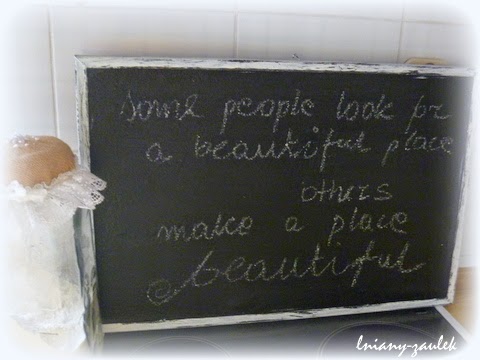 some people look for
a beautiful place
others
make a place
beautiful
lniany-zaułek